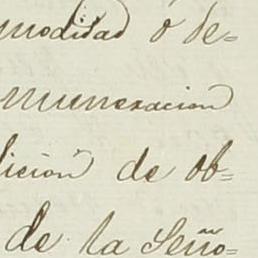 modidad ó de=
muneracion
dicion de ob=
de la Seño=